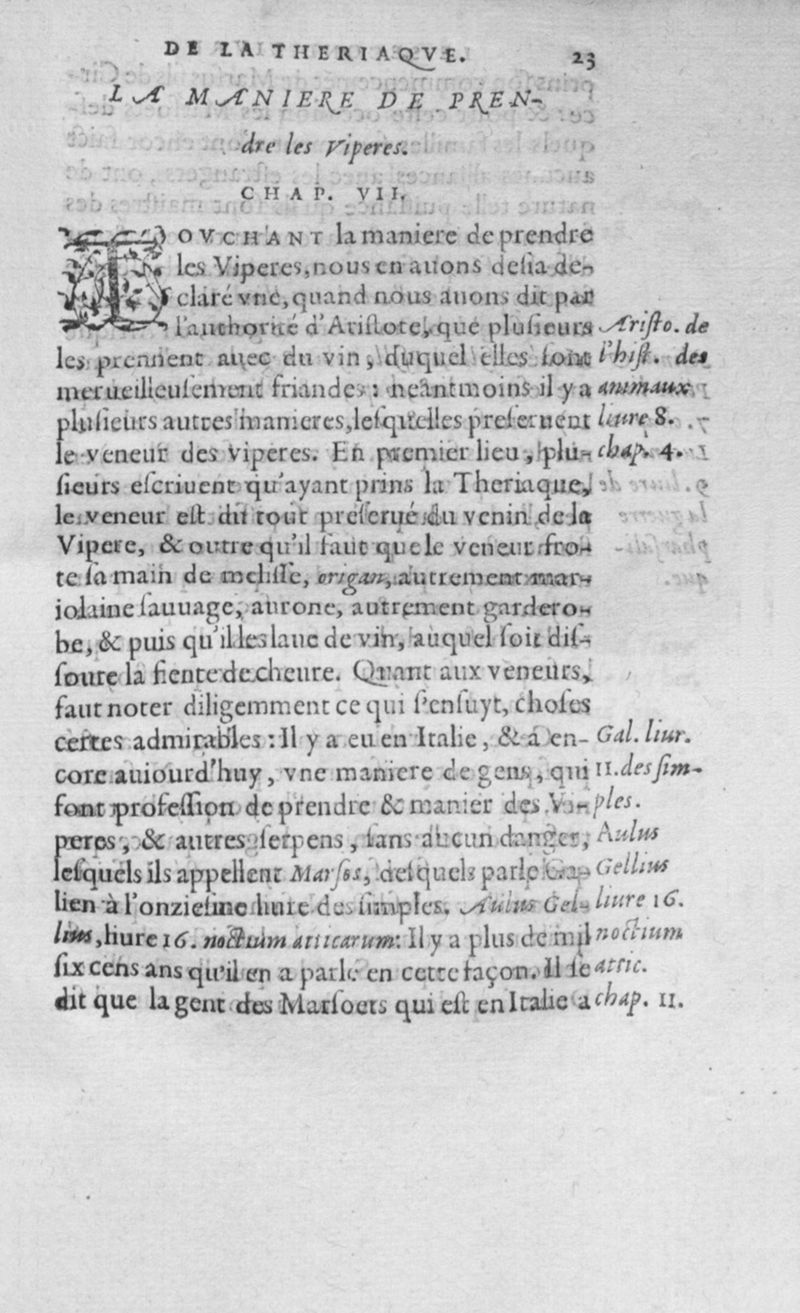 DE LA THERIAQVE. 23
LA MANIERE DE PREN-
dre les Viperes.
CHAP. VII.
TOVCHANT la maniere de prendre
les Viperes, nous en auons desia de-
claré vne, quand nous auons dit par
l'authorité d'Aristote, que plusieurs
les prennent auec du vin, duquel elles sont
merueilleusement friandes: neãtmoins il y a
plusieurs autres manieres, lesquelles preseruent
le veneur des viperes. En premier lieu, plu-
sieurs escriuent qu'ayant prins la Theriaque,
le veneur est du tout preserué du venin de la
Vipere, & outre qu'il faut que le veneur fro-
te sa main de melisse, origan, autrement mar-
iolaine sauuage, aurone, autrement gardero-
be, & puis qu'il les laue de vin, auquel soit dis-
soute la fiente de cheure. Quant aux veneurs,
faut noter diligemment ce qui s'ensuyt, choses
certes admirables: Il y a eu en Italie, & á en-
core auiourd'huy, vne maniere de gens, qui
font profession de prendre & manier des Vi-
peres, & autres serpens, sans aucun danger,
lesquels ils appellent Marsos, desquels parle Ga-
lien à l'onziesme liure des simples. Aulus Gel-
lius, liure 16. noctium atticarum: Il y a plus de mil
six cens ans qu'il en a parlé en cette façon. Il se
dit que la gent des Marsoets qui est en Italie a
Aristo. de
l'hist. des
animaux
liure 8.
chap. 4.
Gal. liur.
11. des sim-
ples.
Aulus
Gellius
liure 16.
noctium
attic.
chap. 11.